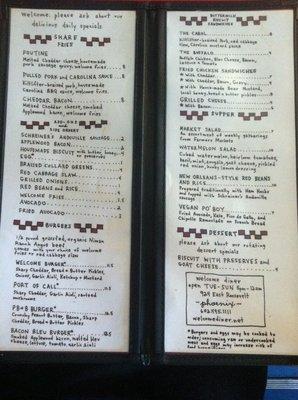 welcome. please ask about our
delicious daily specials
SHARE
FRIES
POUTINE
Melted cheddar cheese, housemade
pork sausage gravy, welcome fries
PULLED PORK and CAROLINA SAUCE
Carolina BBQ sauce, welcome fries
CHEDDAR BACON
Melted cheddar cheese, smoked
Applewood bacon, welcome fries
ADD-ONS and
SIDE DESERT
SCHREINER'S ANDOUILLE SAUSAGE
APPLEWOOD BACON
HOUSEMADE BISCUIT with butter, honey
or preserves
EGG*
BRAISED COLLARD GREENS
RED CABBAGE SLAW
GRILLED ONIONS
RED BEANS and RICE
WELCOME FRIES
AVOCADO
FRIED AVOCADO
BURGERS
1/2 pound grassfed, organic Niman
Ranch Angus beef
comes with your choice of welcome
fries or red cabbage slaw
WELCOME BURGER*
Sharp Cheddar, Bread + Butter Pickles,
Onion, Garlic Aioli, Ketchup + Mustard
PORT OF CALL*
Sharp Cheddar, Garlic Aioli, sauteed
mushrooms
PB+B BURGER*
Crunchy Peanut Butter, Bacon, Sharp
Cheddar, Bread + Butter Pickles
BACON BLEU BURGER*
Smoked Applewood bacon, melted bleu
cheese, lettuce, tomato, garlic aioli
BUTTERMILK
BISCUIT
SANDWICHES
THE CABAL
slaw, Carolina mustard sauce
THE BUFFALO
Buffalo Chicken, Bleu Cheese, Bacon,
Lettuce + Tomato
FRIED CHICKEN SANDWICHES
w/ Cheddar
w/ Cheddar, Bacon, Gravy
w/ Housemade Beer Mustard,
local honey, bread + butter pickles
GRILLED CHEESE
w/ Bacon
SUPPER
MARKET SALAD
An assortment of weekly gatherings
from Farmers Markets
WATERMELON SALAD
Cubed watermelon, heirloom tomatoes,
NEW ORLEANS-STYLE RED BEANS
AND RICE
Prepared traditionally with Ham Hocks
and topped with Schreiner's Andouille
sausage
VEGAN PO'BOY
Fried Avocado, Kale, Pico de Gallo, and
Chipotle Remoulade on Tomato Bread
DESSERT
please ask about our rotating
dessert specials
BISCUIT WITH PRESERVES and
GOAT CHEESE
welcome diner
open TUE-SUN 6pm-12am
924 East Roosevelt
-phoenix-
602.495.1111
welcomediner.net
*Burgers and eggs may be cooked to
order; consuming raw or undercooked
meat and eggs may increase risk of